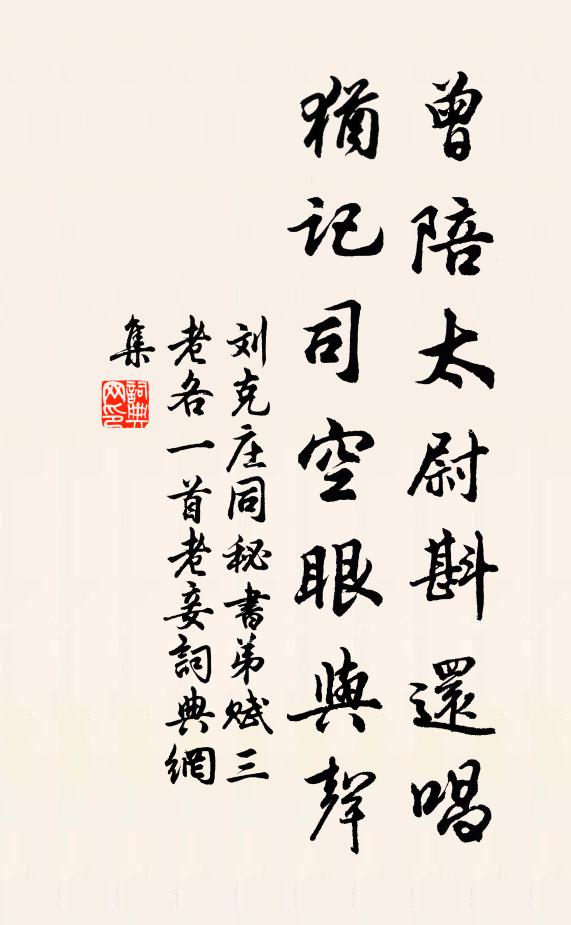 曾陪太尉斟還唱
猶记司空眼與聲
刘克庄同秘書弟赋三
老各一首老妾詞典網
集
詞典
网印